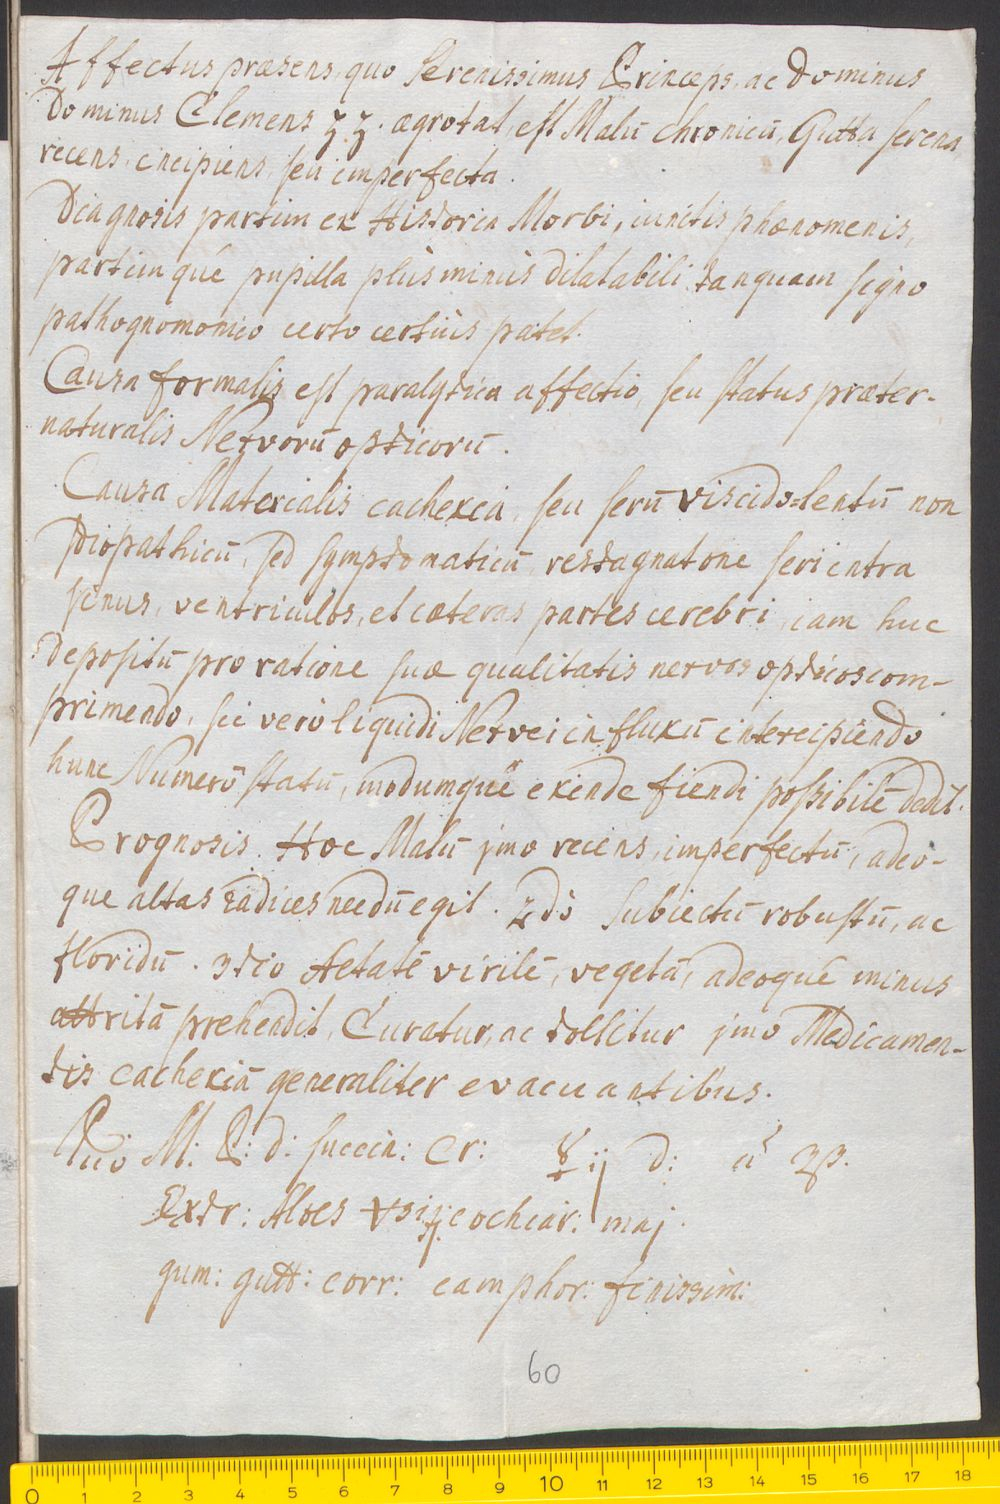 Affectus præsens, quo Serenissimus Princeps, ac Dominus
Dominus Clemens ægrotat, est Malū chronicū, Gutta serena,
recens, incipiens, seu imperfecta.
Diagnosis partim ex Historia Morbi, iunctis phænomenis,
partimqúe pupilla plùs minùs dilatabili tanquam signo
pathognomonico certo certiùs patet.
Causa formalis est paralytica affectio, seu status præter-
naturalis Nervorū opticorū.
Causa Materialis cachexia, seu serū viscido=lentū non
idiopathicū, sed symptomaticū, restagnatone seri intra
sinus, ventriculos, et cæteras partes cerebri, iam huc
depositū pro ratione suæ qualitatis nervos opticos com-
primendo, sei verò liquidi Nervei influxū intercipiendo
hunc Numerō statū, modumqúe exinde fiendi possibilē dedit.
Prognosis. Hoc Malū jmo recens, imperfectū, adeo-
que altas radices necdū egit. 2dò Subiectū robustū, ac
floridū. 3tio Aetatē virilē, vegetā, adeoqúe minus
attritā prehendit, Curatur, ac tollitur jmo Medicamen-
tis cachexiā generaliter evacuantibus.
M: P: d: succin: Cr: ij d: a
Extr: Aloes cochiar: maj.
gum: gutt: corr: camphor: finissim:
60
0 1 2 3 4 5 6 7 8 9 10 11 12 13 14 15 16 17 18